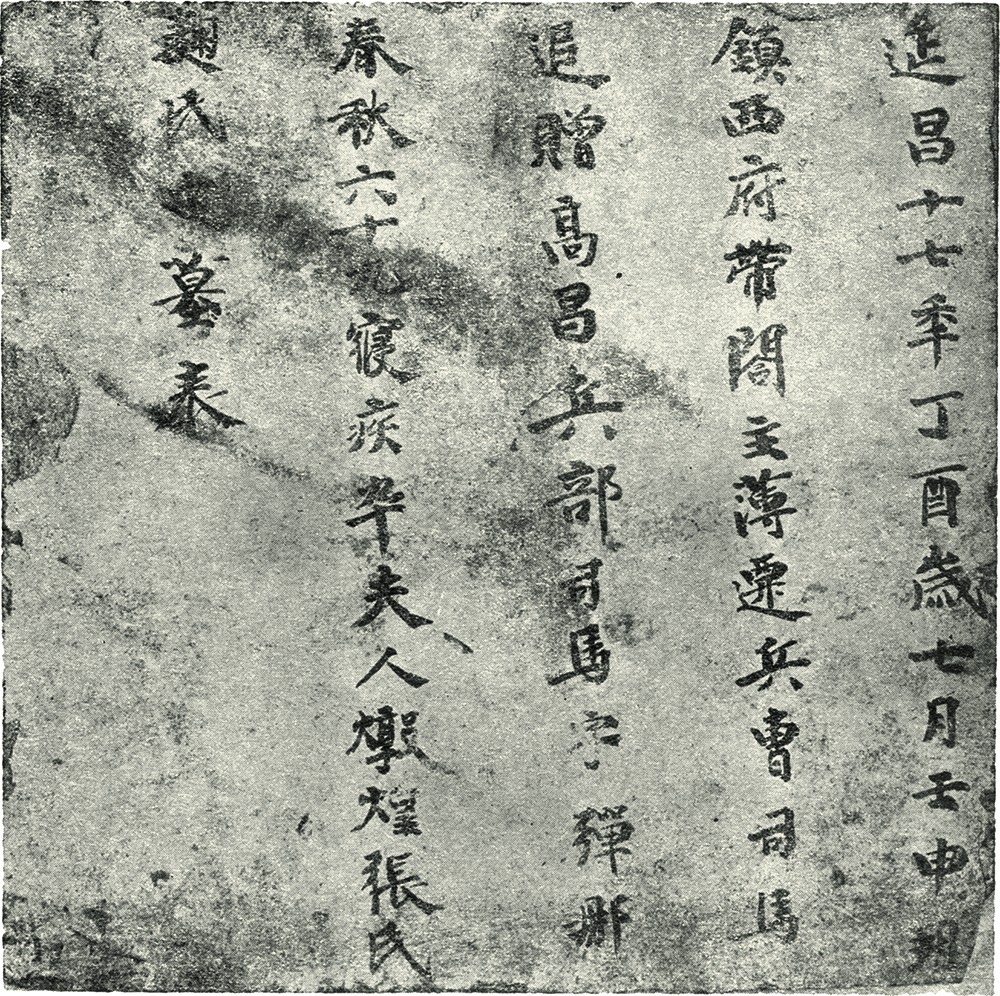 延昌十七年丁酉歲七月壬申朔
鎮西府帶閤主薄遷兵曹司馬
追贈高昌兵部司馬字彈那
春秋六十九寢疾卒夫人燉煌張氏
麹氏 墓表